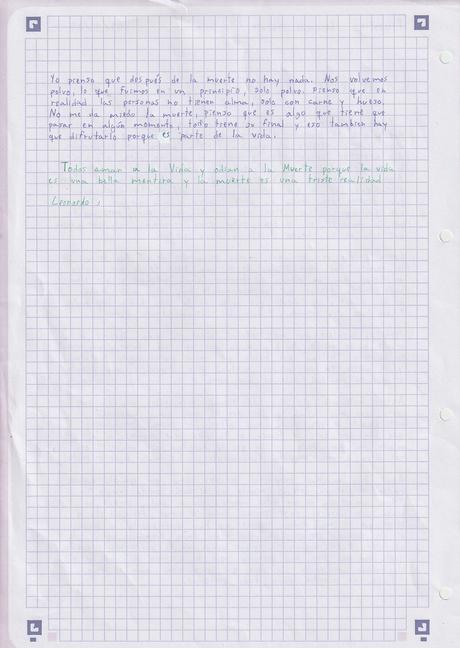 Yo pienso que después de la muerte no hay nada. Nos volvemos
polvo, lo que fuimos en un principio, solo polvo. Pienso que en
realidad las personas no tienen alma, solo con carne y hueso.
No me da miedo la muerte, pienso que es algo que tiene que
pasar en algún momento, todo tiene su final y eso tambien hay
que disfrutarlo porque es parte de la vida.
Todos aman a la Vida y odian a la Muerte porque la vida
es una bella mentira y la muerte es una triste realidad
Leonardo